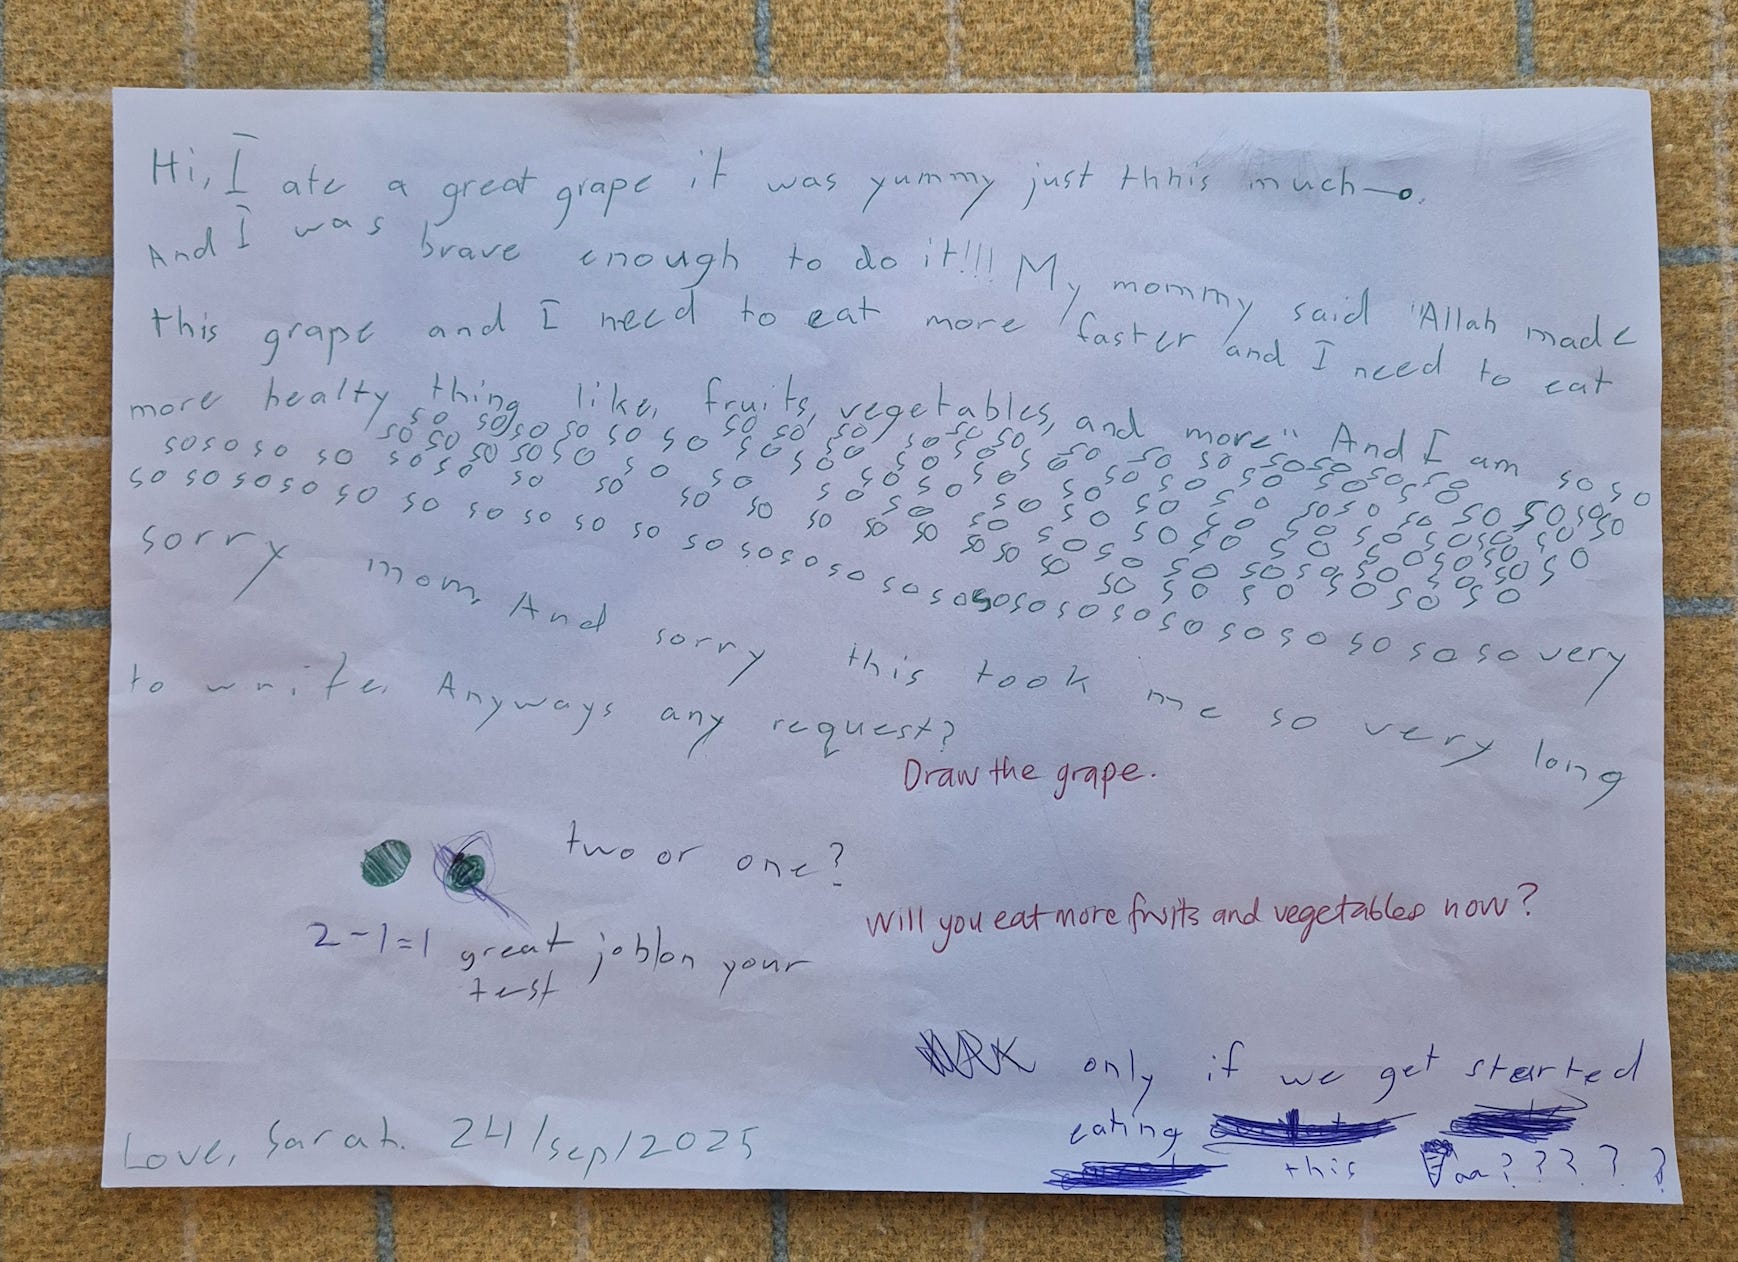 Hi, I ate a great grape it was yummy just thhis much
And I was brave enough to do it!!! My mommy said "Allah made
this grape and I need to eat more faster and I need to eat
more healty thing like, fruits, vegetables, and more" And I am so so
so so so so so so so so so so so so so so so so so so so so so so
so so so so so so so so so so so so so so so so so so so so so so
so so so so so so so so so so so so so so so so so so so so so so
so so so so so so so so so so so so so so so so so so so so so so so so so so so so very
sorry mom. And sorry this took me so very long
to write. Anyways any request?
Draw the grape.
two or one?
2-1=1 great job on your
test
Will you eat more fruits and vegetables now?
only if we get started
eating
this ?????
Love, Sarah. 24/sep/2025